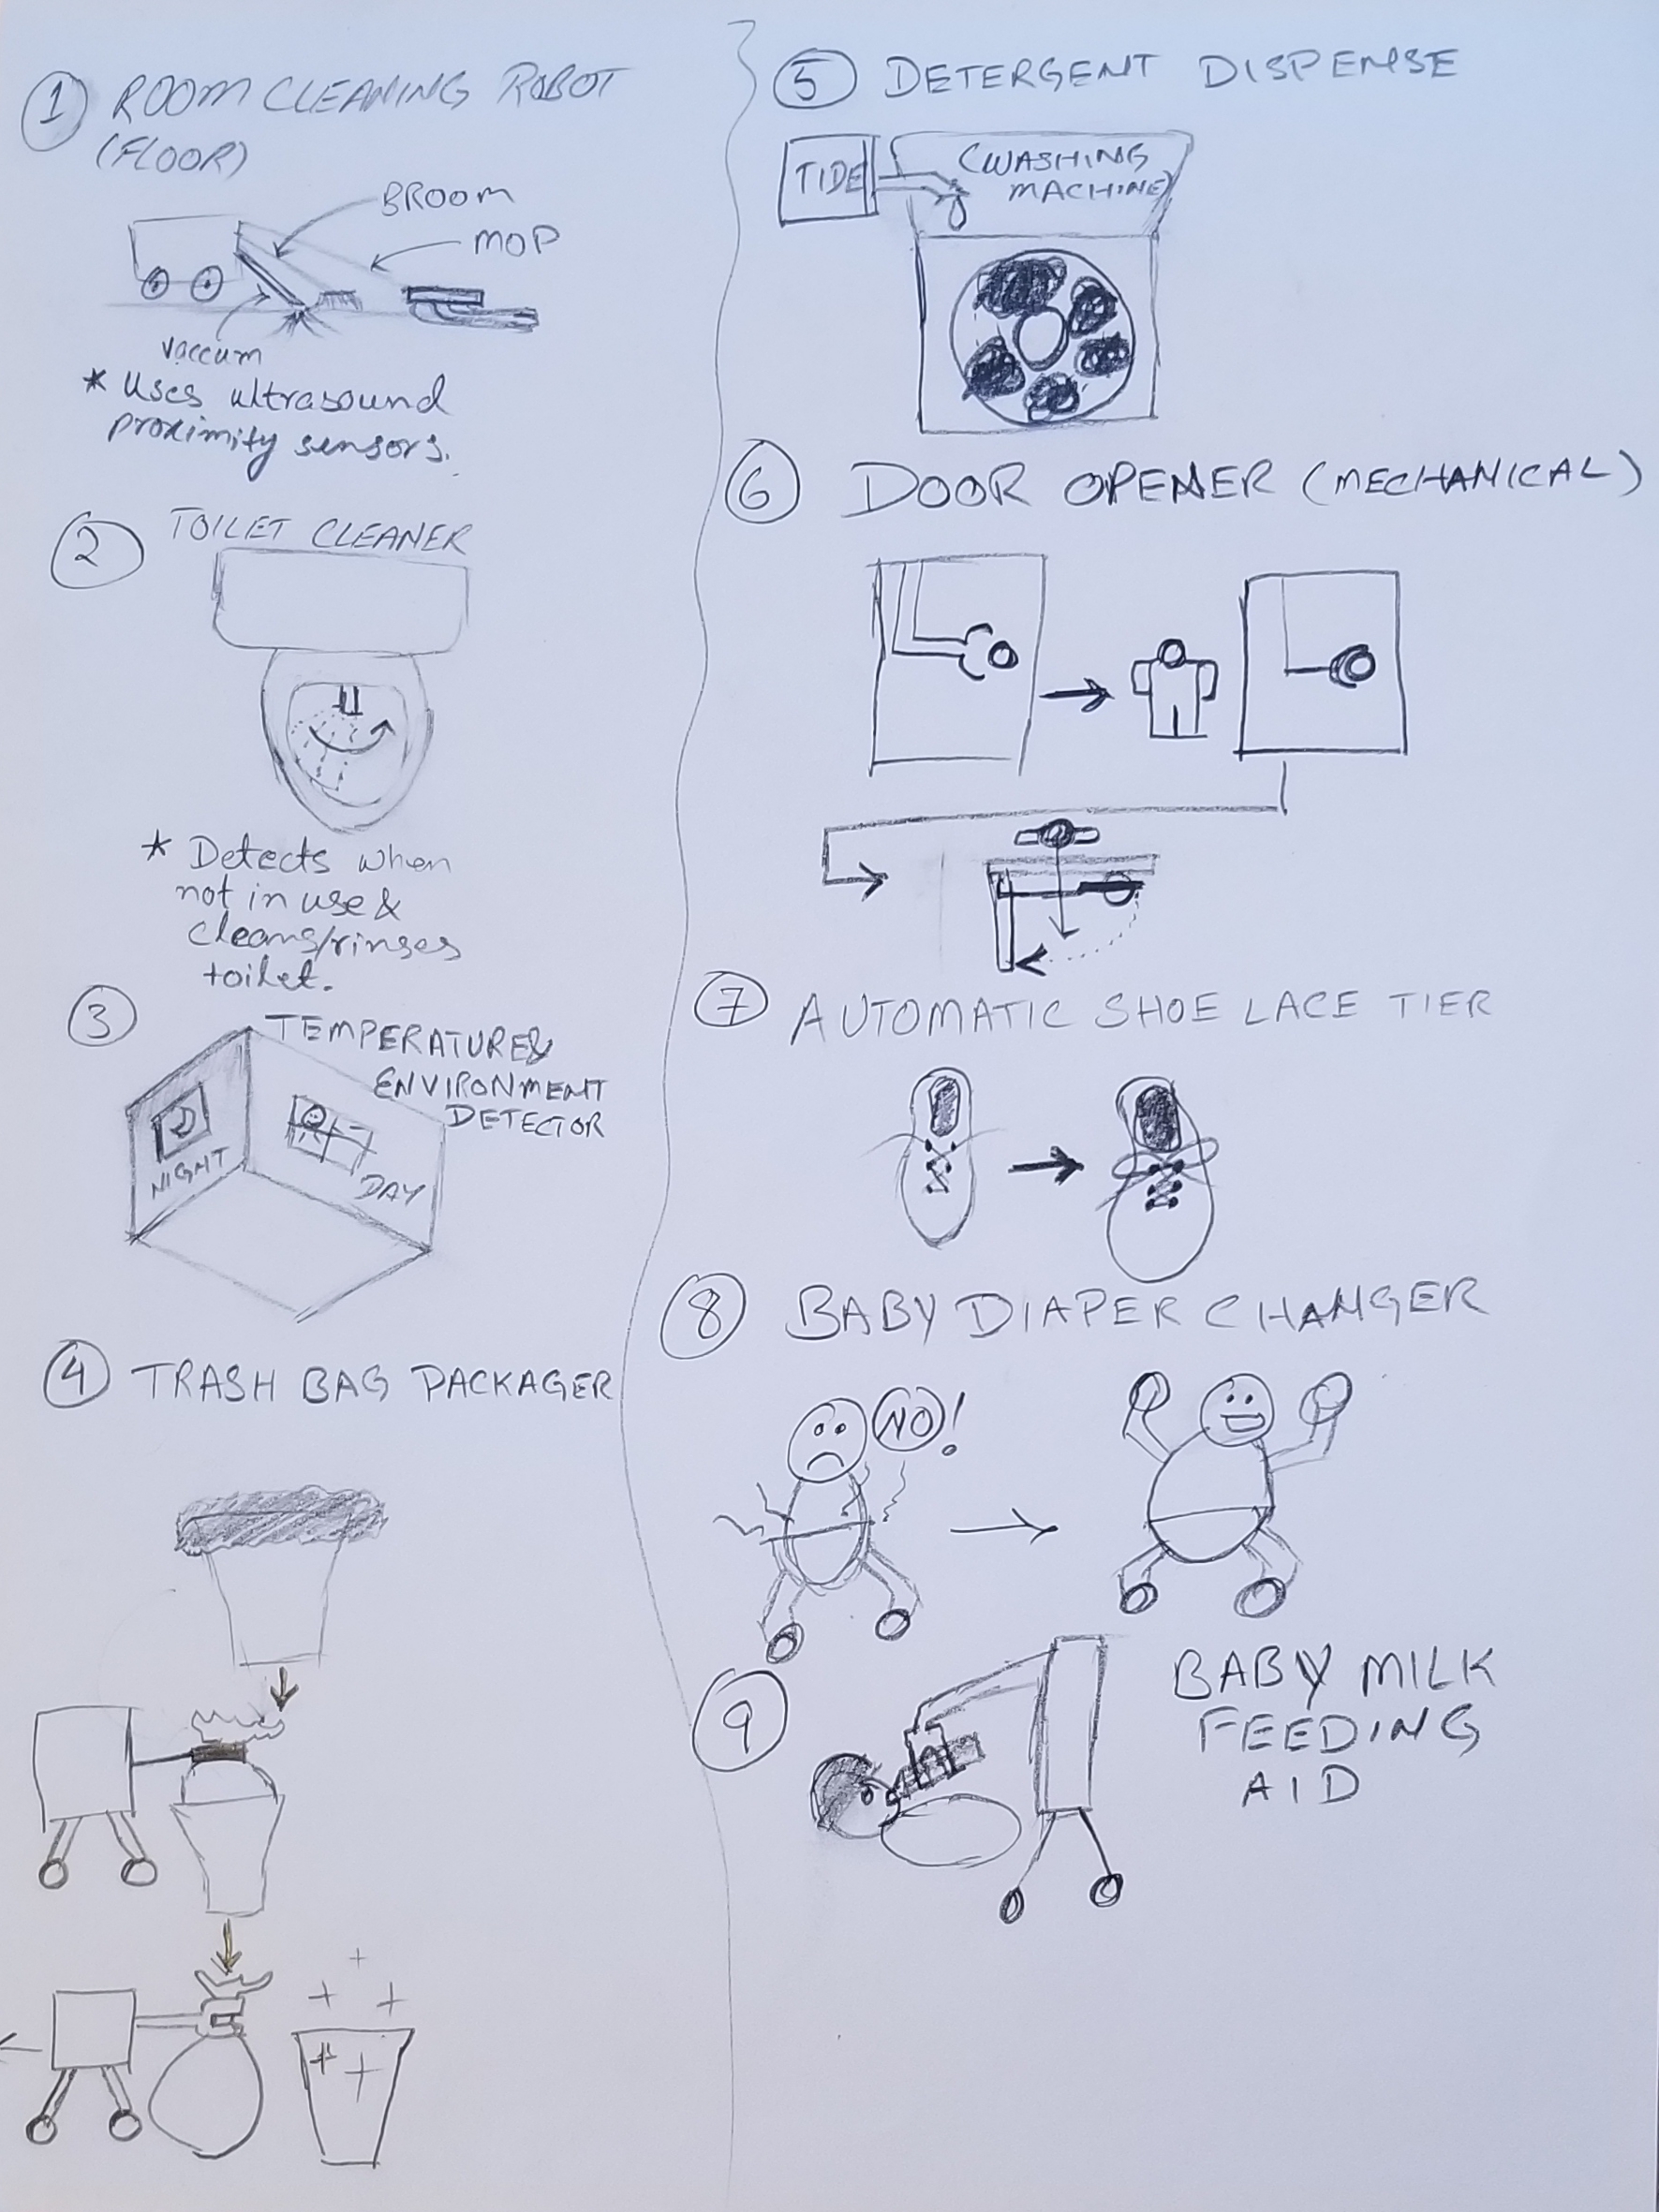 1 ROOM CLEANING ROBOT
(FLOOR)
BROOM
MOP
Vaccum
* Uses ultrasound
proximity sensors.
2 TOILET CLEANER
* Detects when
not in use &
cleans/rinses
toilet.
3 TEMPERATURE &
ENVIRONMENT
DETECTOR
NIGHT
DAY
4 TRASH BAG PACKAGER
5 DETERGENT DISPENSE
TIDE
(WASHING
MACHINE)
6 DOOR OPENER (MECHANICAL)
7 AUTOMATIC SHOE LACE TIER
8 BABY DIAPER CHANGER
NO!
9 BABY MILK
FEEDING
AID